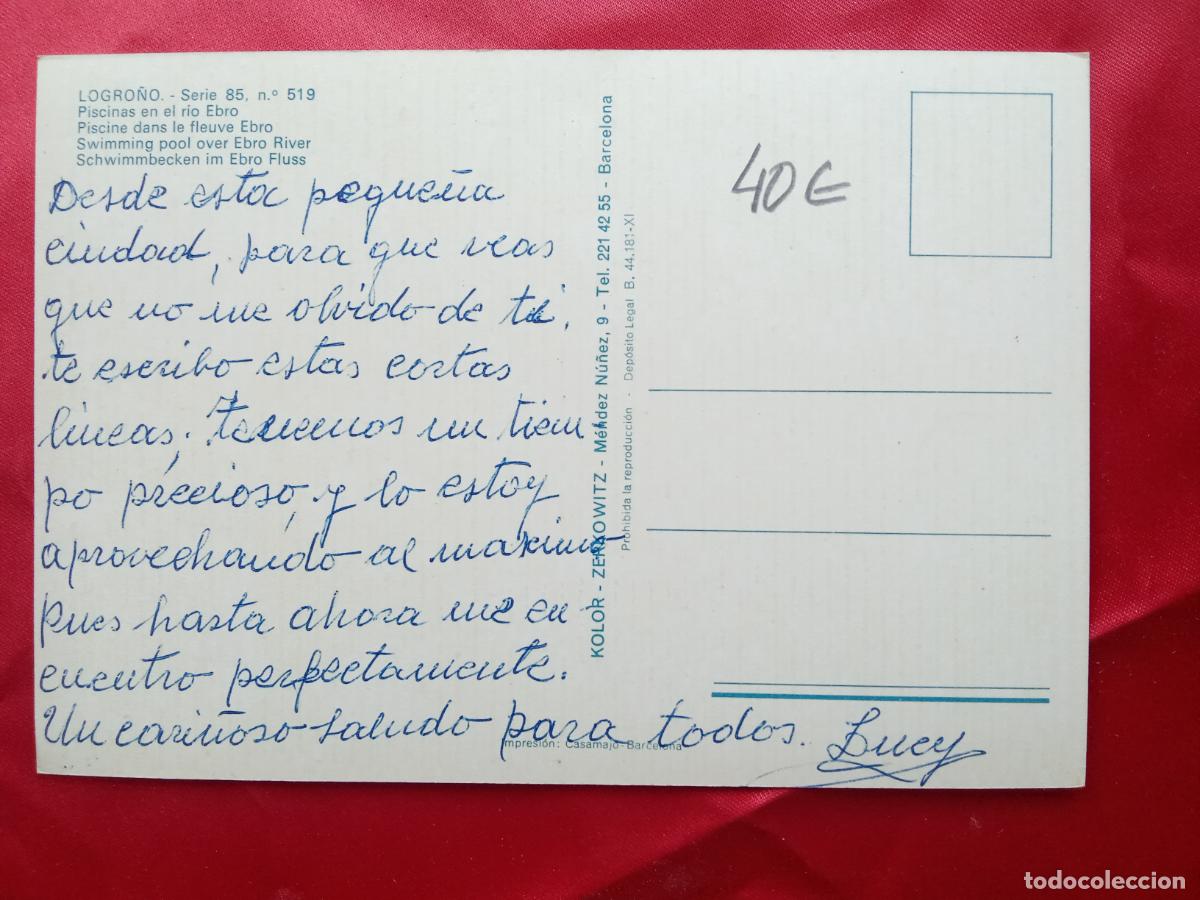 LOGROÑO. - Serie 85, n.º 519
Piscinas en el río Ebro
Piscine dans le fleuve Ebro
Swimming pool over Ebro River
Schwimmbecken im Ebro Fluss
Desde esta pequeña
ciudad, para que veas
que no me olvido de ti,
te escribo estas cortas
líneas. Tenemos un tiem
po precioso, y lo estoy
aprovechando al maximo
pues hasta ahora me en
cuentro perfectamente.
Un cariñoso saludo para todos. Lucy
Impresión: Casamajó-Barcelona
KOLOR - ZERKOWITZ - Méndez Núñez, 9 - Tel. 221 42 55 - Barcelona
Prohibida la reproducción - Depósito Legal B. 44.181-XI
40€
todocoleccion